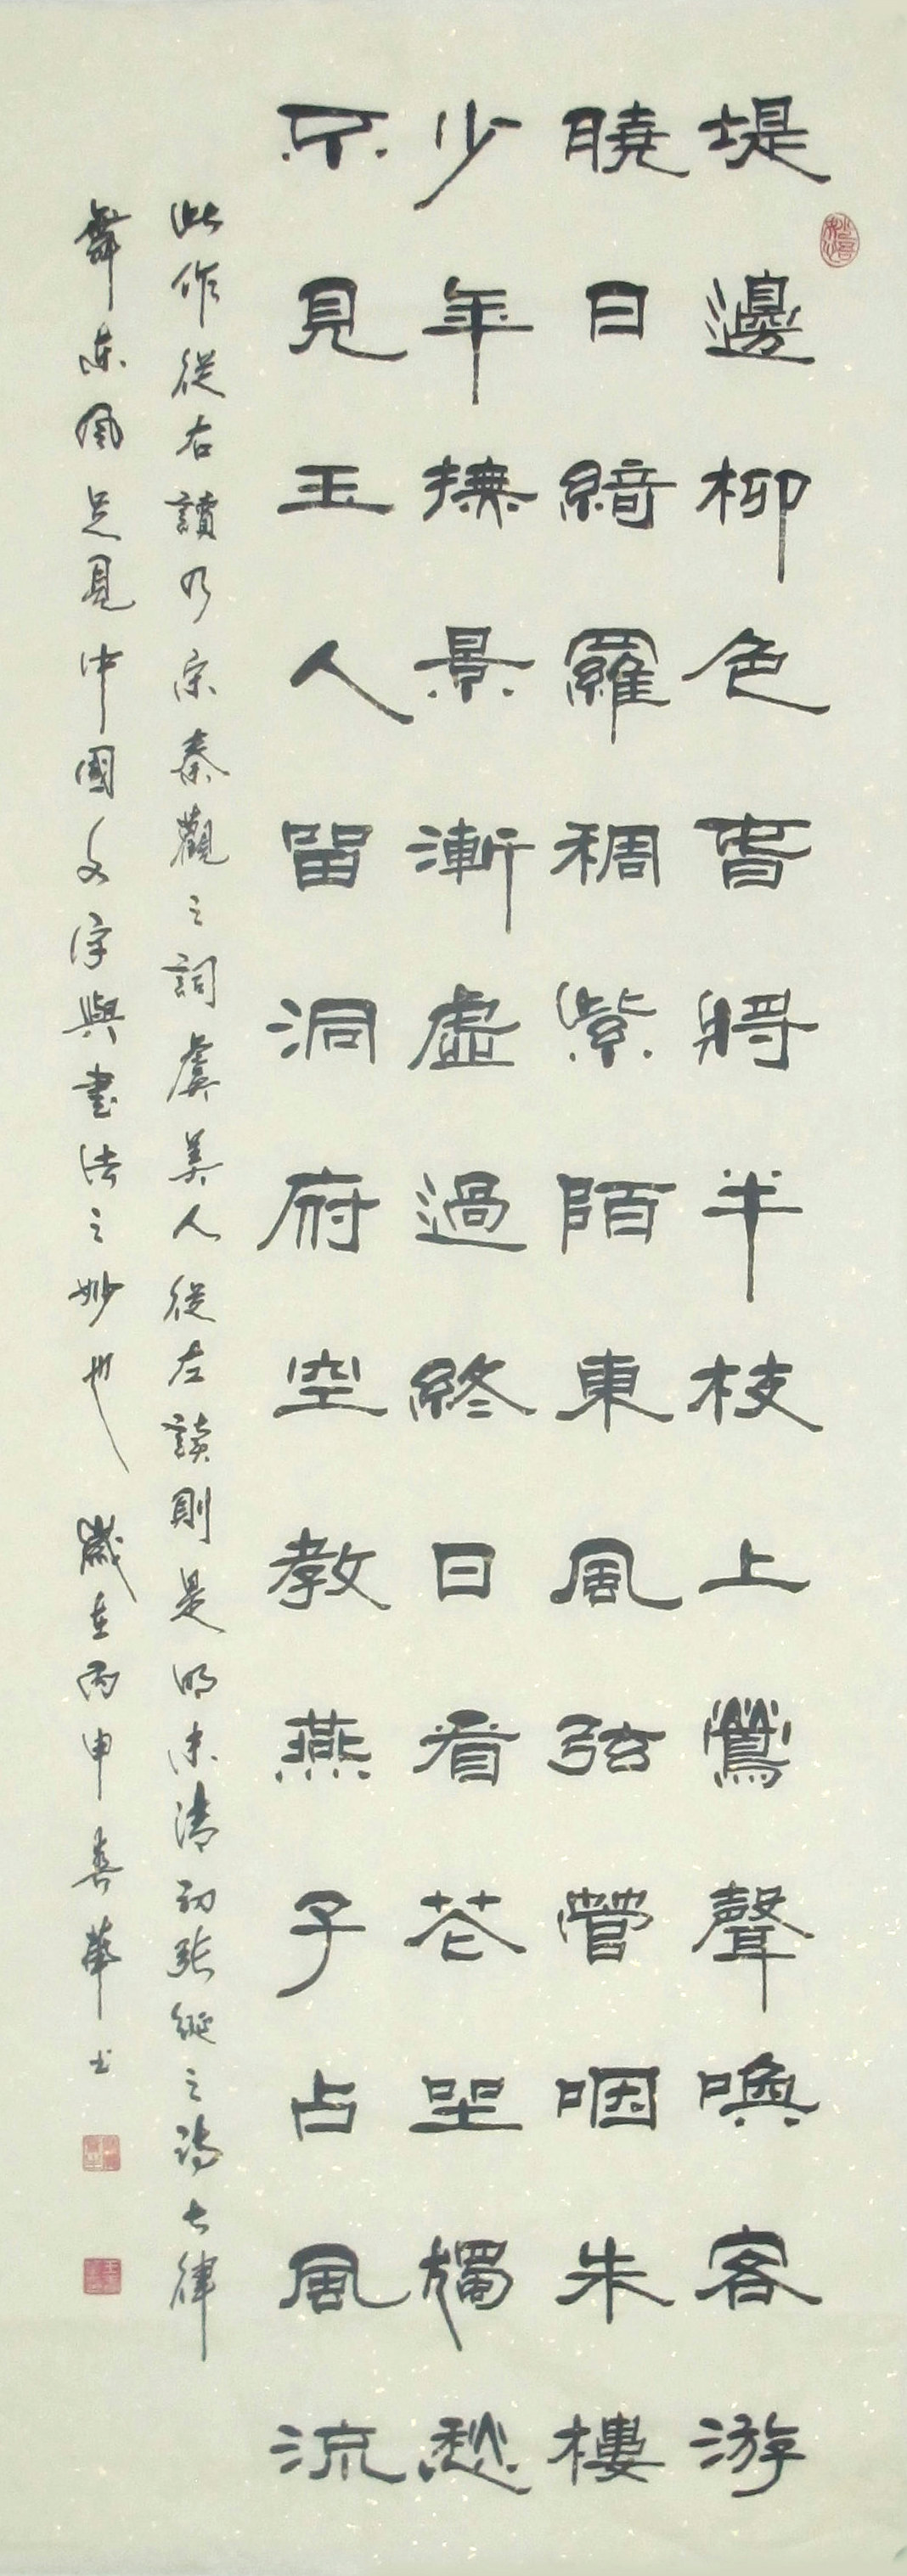 堤邊柳色春將半枝上鶯聲喚客游
曉日綺羅稠紫陌東風弦管咽朱樓
少年撫景漸虛過終日看花坐獨愁
不見玉人留洞府空教燕子占風流
此作從右讀乃宋秦觀之詞虞美人從左讀則是明末清初張綖之詩七律
舞东風足見中國文字與書法之妙也 歲在丙申春華书